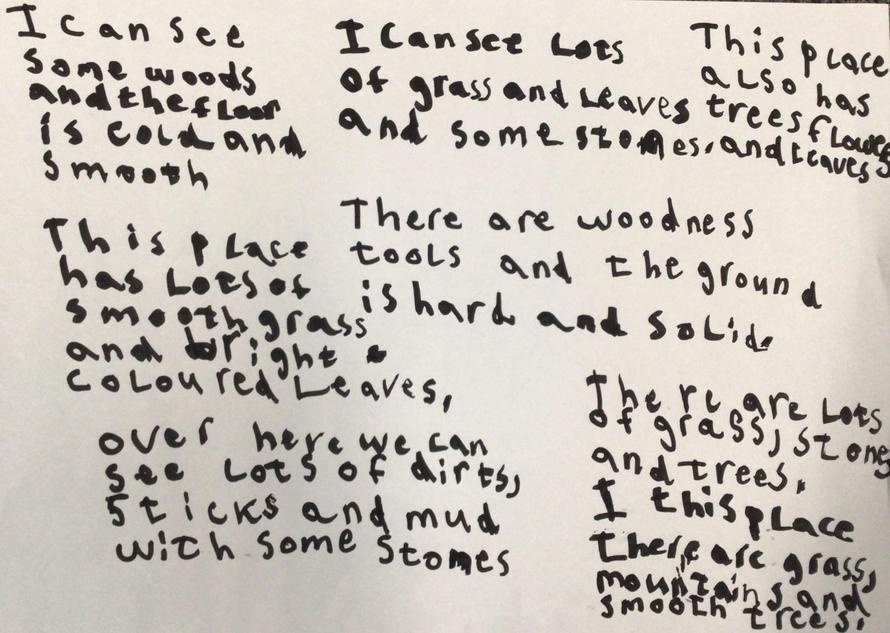 I can see
some woods
and the floor
is cold and
smooth
I can see Lots
of grass and Leaves
and some stomes.
This place
also has
trees flowers
and Leaves
This place
has Lots of
smooth grass
and bright
coloured Leaves,
There are woodness
tools and the ground
is hard and solid.
over here we can
see Lots of dirts,
sticks and mud
with some stomes
There are Lots
of grass, stones
and trees.
I this place
there are grass,
mountains and
smooth trees.